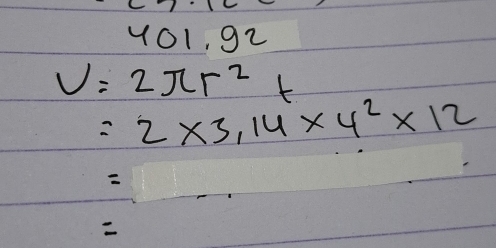 401.92
V = 2πr² t
= 2 × 3,14 × 4² × 12
=
=